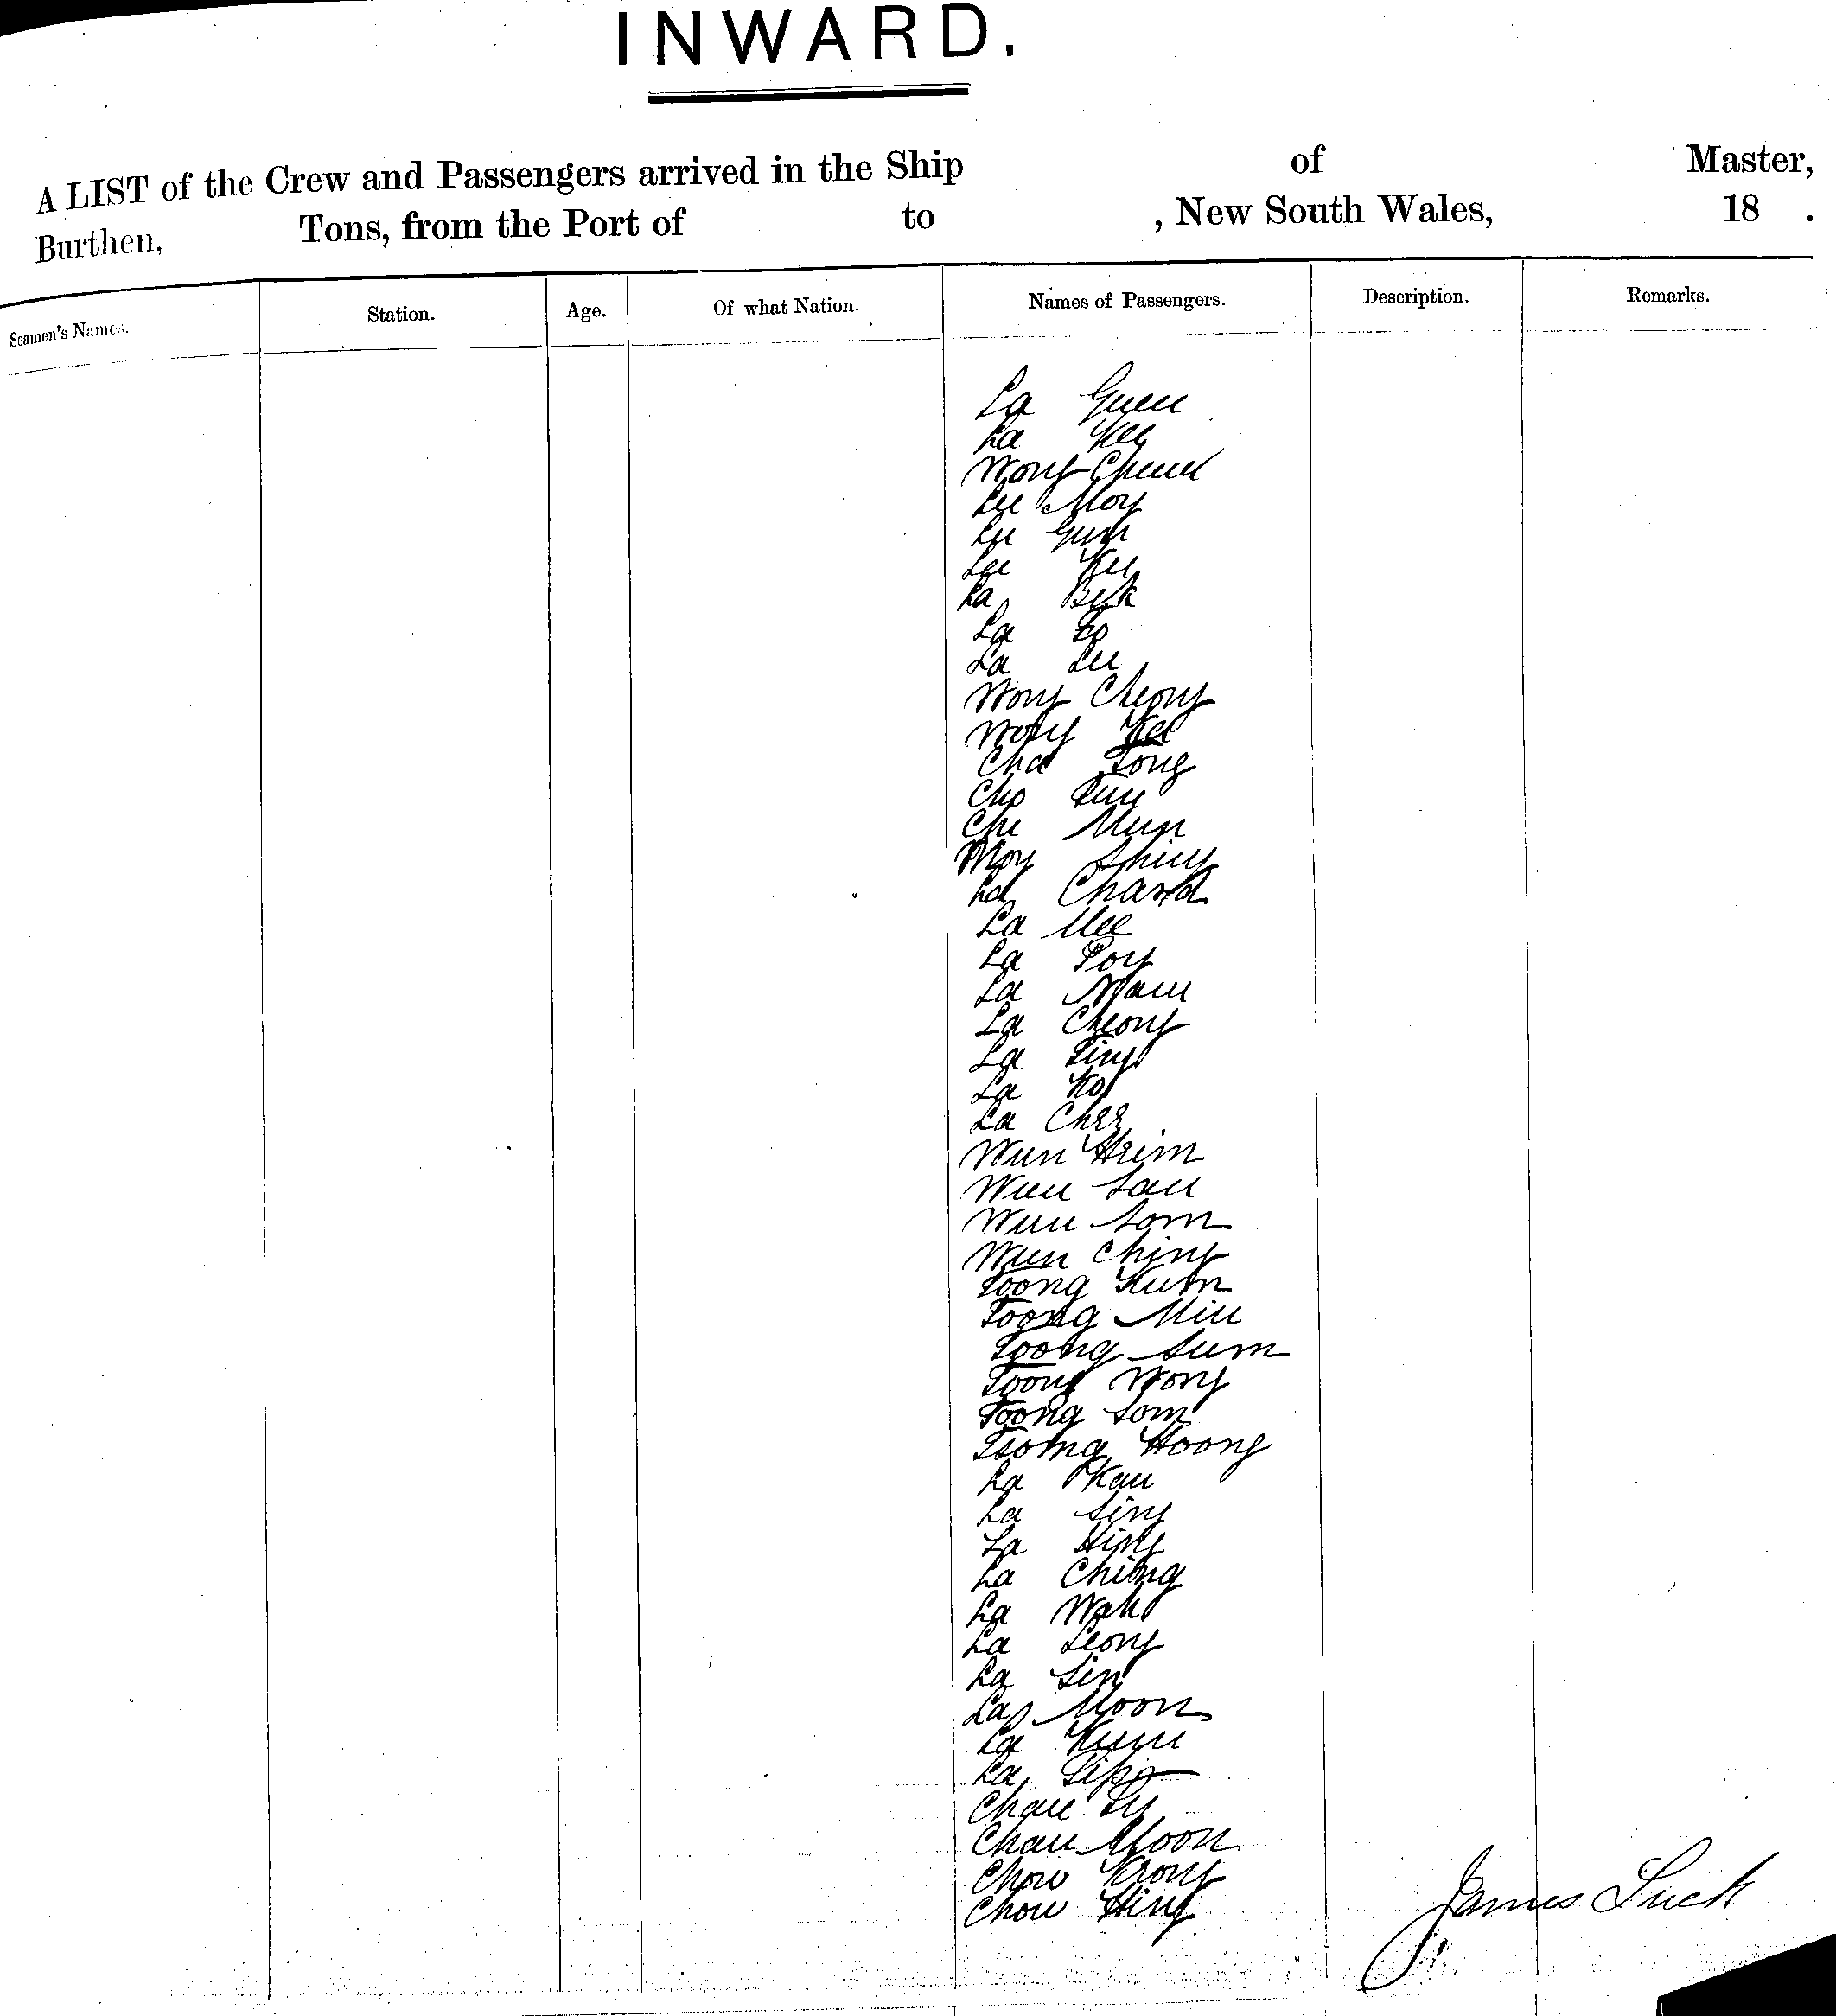 INWARD.
A LIST of the Crew and Passengers arrived in the Ship of Master,
Burthen, Tons, from the Port of to , New South Wales, 18 .
Seamen's Names. Station. Age. Of what Nation. Names of Passengers. Description. Remarks.
La Guen
La Kee
Wong Chuen
Lee Moy
Lee Gum
Lee Kee
La Bek
La
La Lee
Wong Cheong
Wong Kee
Cha Tong
Cho
Che Mun
Moy Shing
La Chand
La Mee
La Poy
La Mau
La Cheong
La Ting
La Ko
La Chee
Wun Heim
Wun Sau
Wun Som
Wun Ching
Toong Kum
Toong Miu
Toong Sum
Toong Wong
Toong Som
Tsong Hoong
La Kau
La Sing
La Hing
La Ching
La Wah
La Leong
La Sin
La Moon
La Kum
La
Chau
Chau Moon
Chow Krong
Chow Hing
James Luck